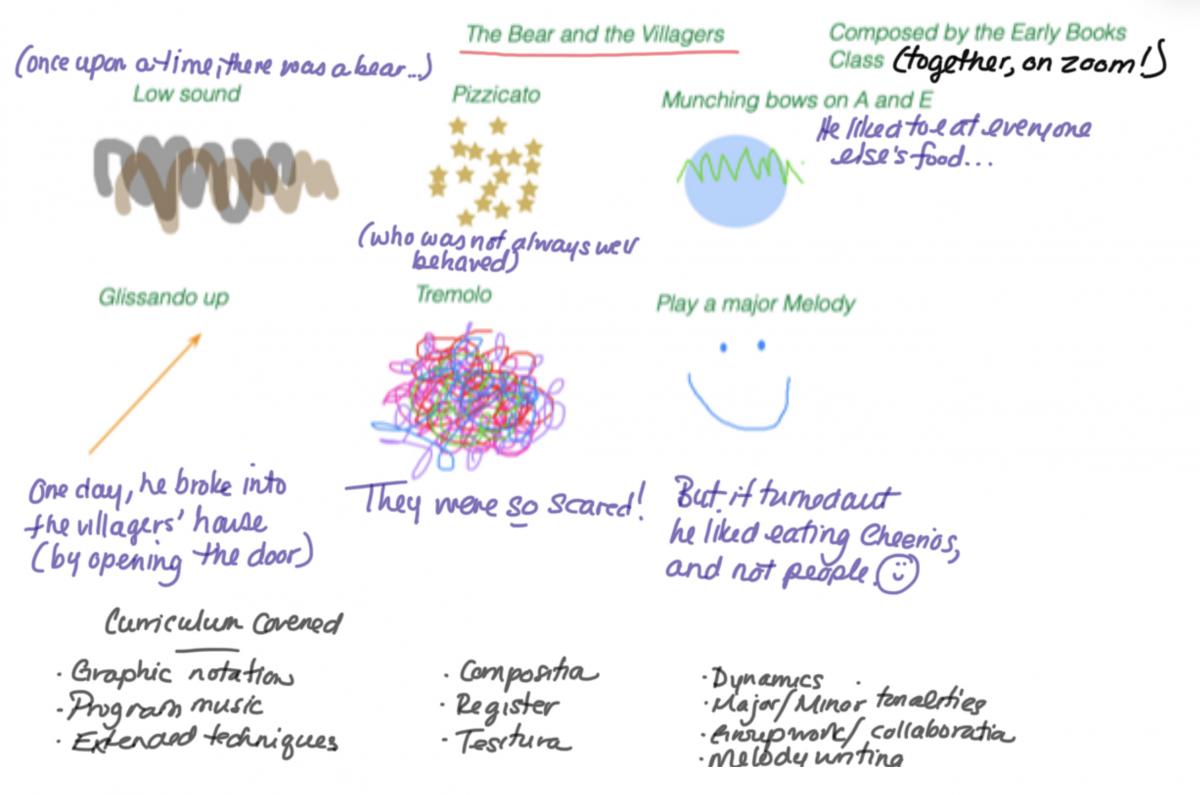 The Bear and the Villagers
Composed by the Early Books
Class (together, on zoom!)
(once upon a time, there was a bear...)
Low sound
Pizzicato
(who was not always well
behaved)
Munching bows on A and E
He liked to eat everyone
else's food...
Glissando up
One day, he broke into
the villagers' house
(by opening the door)
Tremolo
They were so scared!
Play a major Melody
But it turned out
he liked eating Cheerios,
and not people
Curriculum Covered
· Graphic notation
· Program music
· Extended techniques
· Composition
· Register
· Tesitura
· Dynamics
· Major/Minor tonalities
· Groupwork/ collaboration
· Melody writing